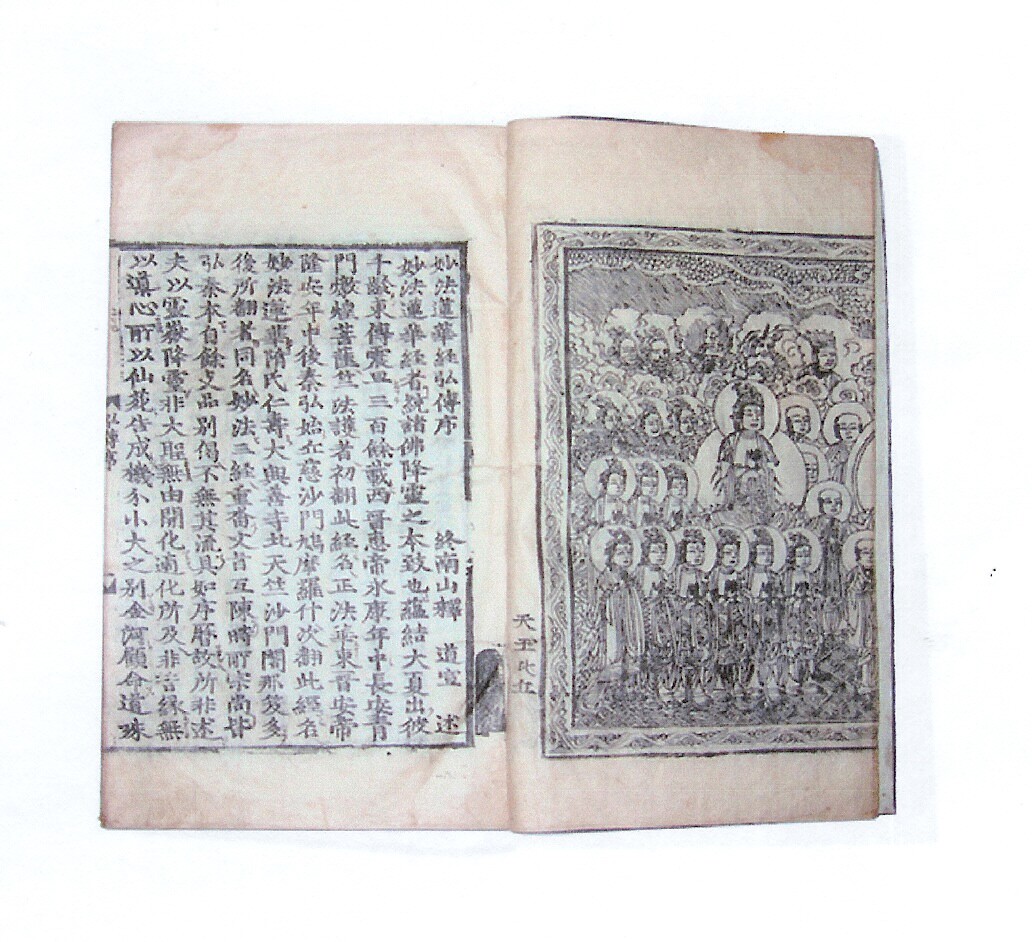 天王比丘
妙法蓮華経弘傳序　終南山釋　道宣　述
妙法蓮華経者統諸佛降靈之本致也蘊結大夏出彼
千齡東傳震旦三百餘載西晉惠帝永康年中長安青
門燉煌菩薩竺法護者初翻此経名正法華東晉安帝
隆安年中後秦弘始丘慈沙門鳩摩羅什次翻此経名
妙法蓮華隋氏仁壽大興善寺北天竺沙門闍那笈多
後所翻者同名妙法三経重沓文旨互陳時所宗尚皆
弘秦本自餘支品別偈不無其流具如序曆故所非述
夫以靈嶽降靈非大聖無由開化適化所及非昔緣無
以導心所以仙苑告成機分小大之別金河顧命道殊